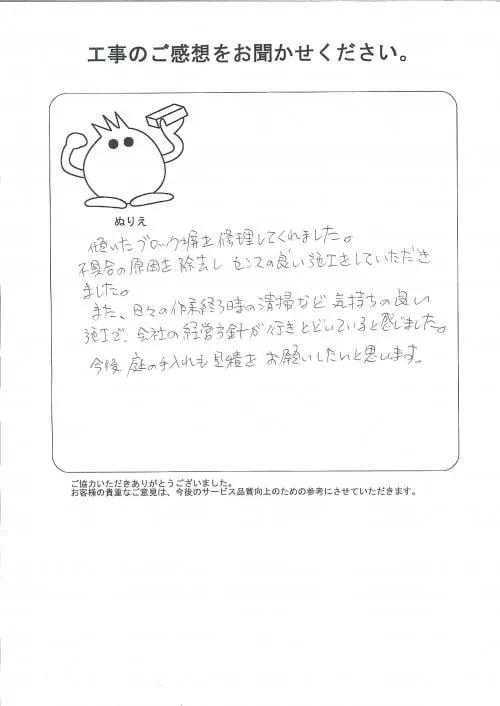 工事のご感想をお聞かせください。
ぬりえ
傾いたブロック塀を修理してくれました。
不具合の原因を除去しセンスの良い施工をしていただき
ました。
また、日々の作業終了時の清掃など気持ちの良い
施工で、会社の経営方針が行きとどいていると感じました。
今後庭の手入れも見積をお願いしたいと思います。
ご協力いただきありがとうございました。
お客様の貴重なご意見は、今後のサービス品質向上のための参考にさせていただきます。